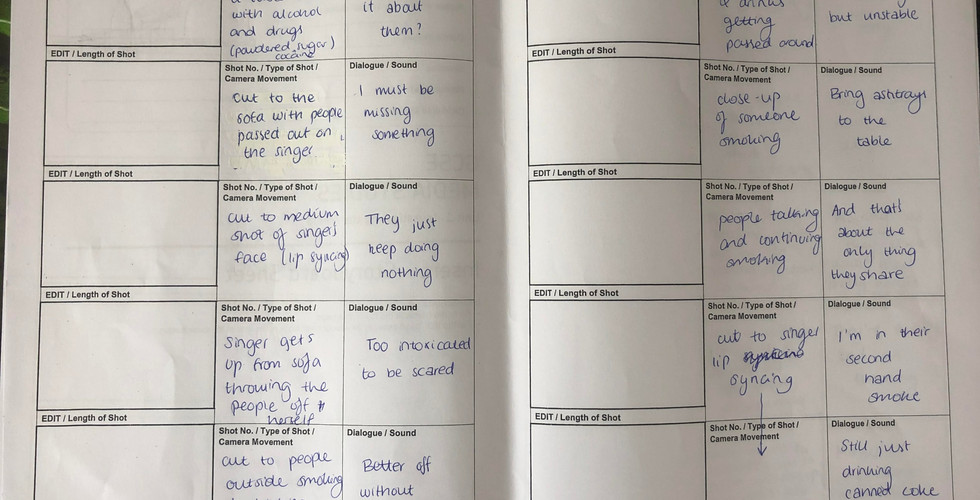 with alcohol
and drugs
(powdered sugar)
cocaine
it about
them?
EDIT / Length of Shot
Shot No. / Type of Shot /
Camera Movement
cut to the
sofa with people
passed out on
the singer
Dialogue / Sound
I must be
missing
something
EDIT / Length of Shot
Shot No. / Type of Shot /
Camera Movement
cut to medium
shot of singers
face (lip syncing)
Dialogue / Sound
They just
keep doing
nothing
EDIT / Length of Shot
Shot No. / Type of Shot /
Camera Movement
Singer gets
up from sofa
throwing the
people off
herself
Dialogue / Sound
Too intoxicated
to be scared
EDIT / Length of Shot
Shot No. / Type of Shot /
Camera Movement
cut to people
outside smoking
Dialogue / Sound
Better off
without
getting
passed around
but unstable
EDIT / Length of Shot
Shot No. / Type of Shot /
Camera Movement
close-up
of someone
smoking
Dialogue / Sound
Bring ashtrays
to the
table
EDIT / Length of Shot
Shot No. / Type of Shot /
Camera Movement
people talking
and continuing
smoking
Dialogue / Sound
And that's
about the
only thing
they share
EDIT / Length of Shot
Shot No. / Type of Shot /
Camera Movement
cut to singer
lip
syncing
Dialogue / Sound
I'm in their
second
hand
smoke
EDIT / Length of Shot
Shot No. / Type of Shot /
Camera Movement
Dialogue / Sound
Still just
drinking
canned coke